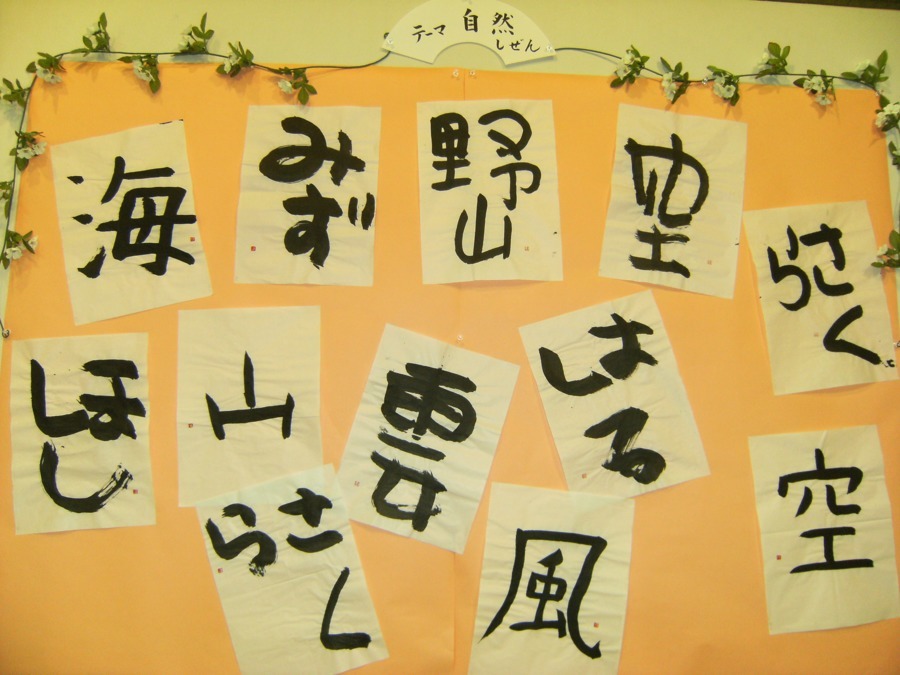 テーマ 自然
しぜん
海
みず
野山
さくら
ほし
山
雲
はる
空
さくら
風